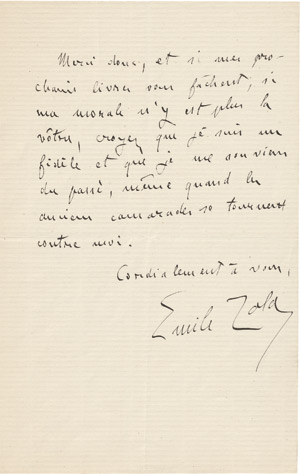 Merci donc, et si mes pro-
chains livres vous fâchent, si
ma morale n'y est plus la
vôtre, croyez que je suis un
fidèle et que je me souviens
du passé, même quand les
anciens camarades se tournent
contre moi.
Cordialement à vous,
Emile Zola